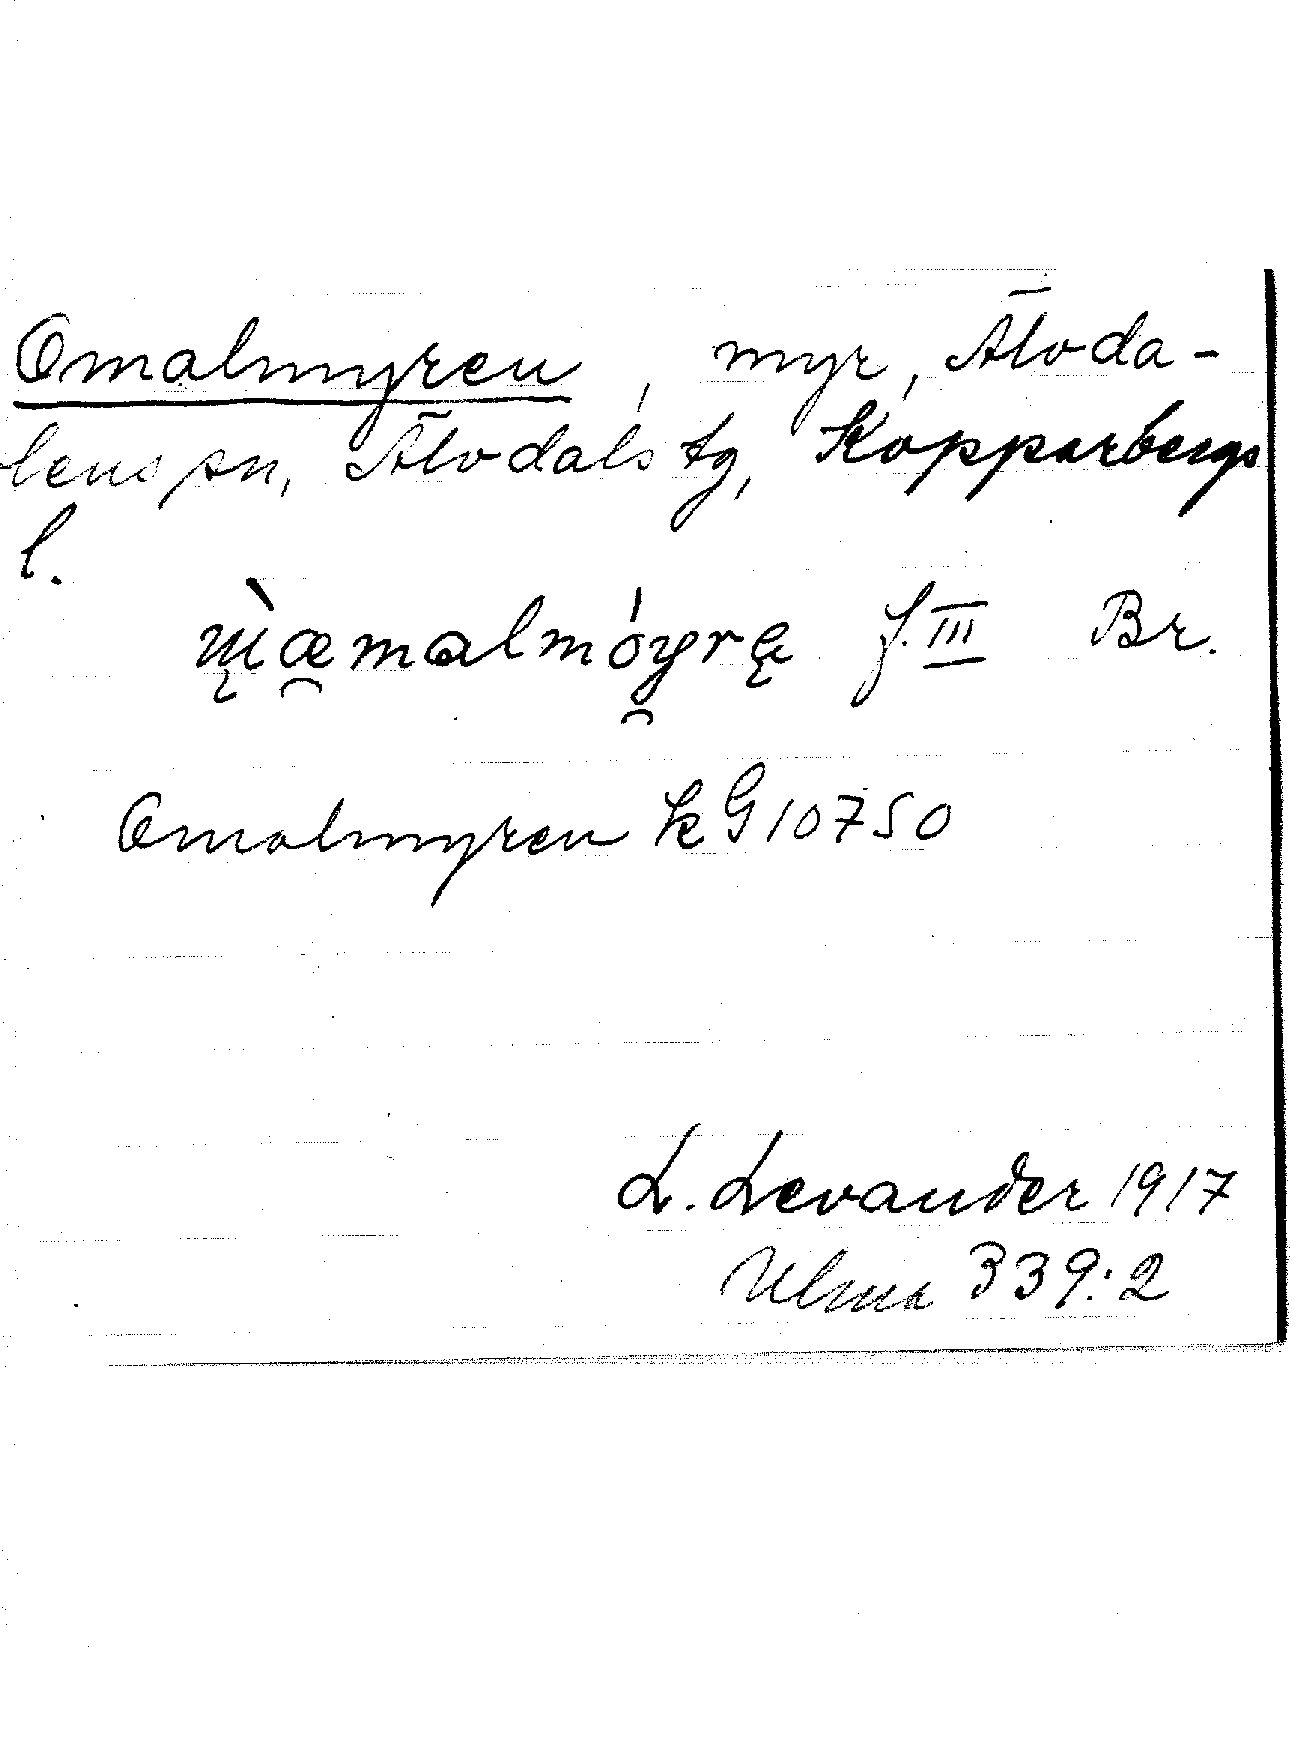 Omalmyren, myr, Älvda-
lens sn, Älvdals tg, Kopparbergs
l.
f. III Br.
Omalmyren kG 10750
L. Levander 1917
Ulma 339:2